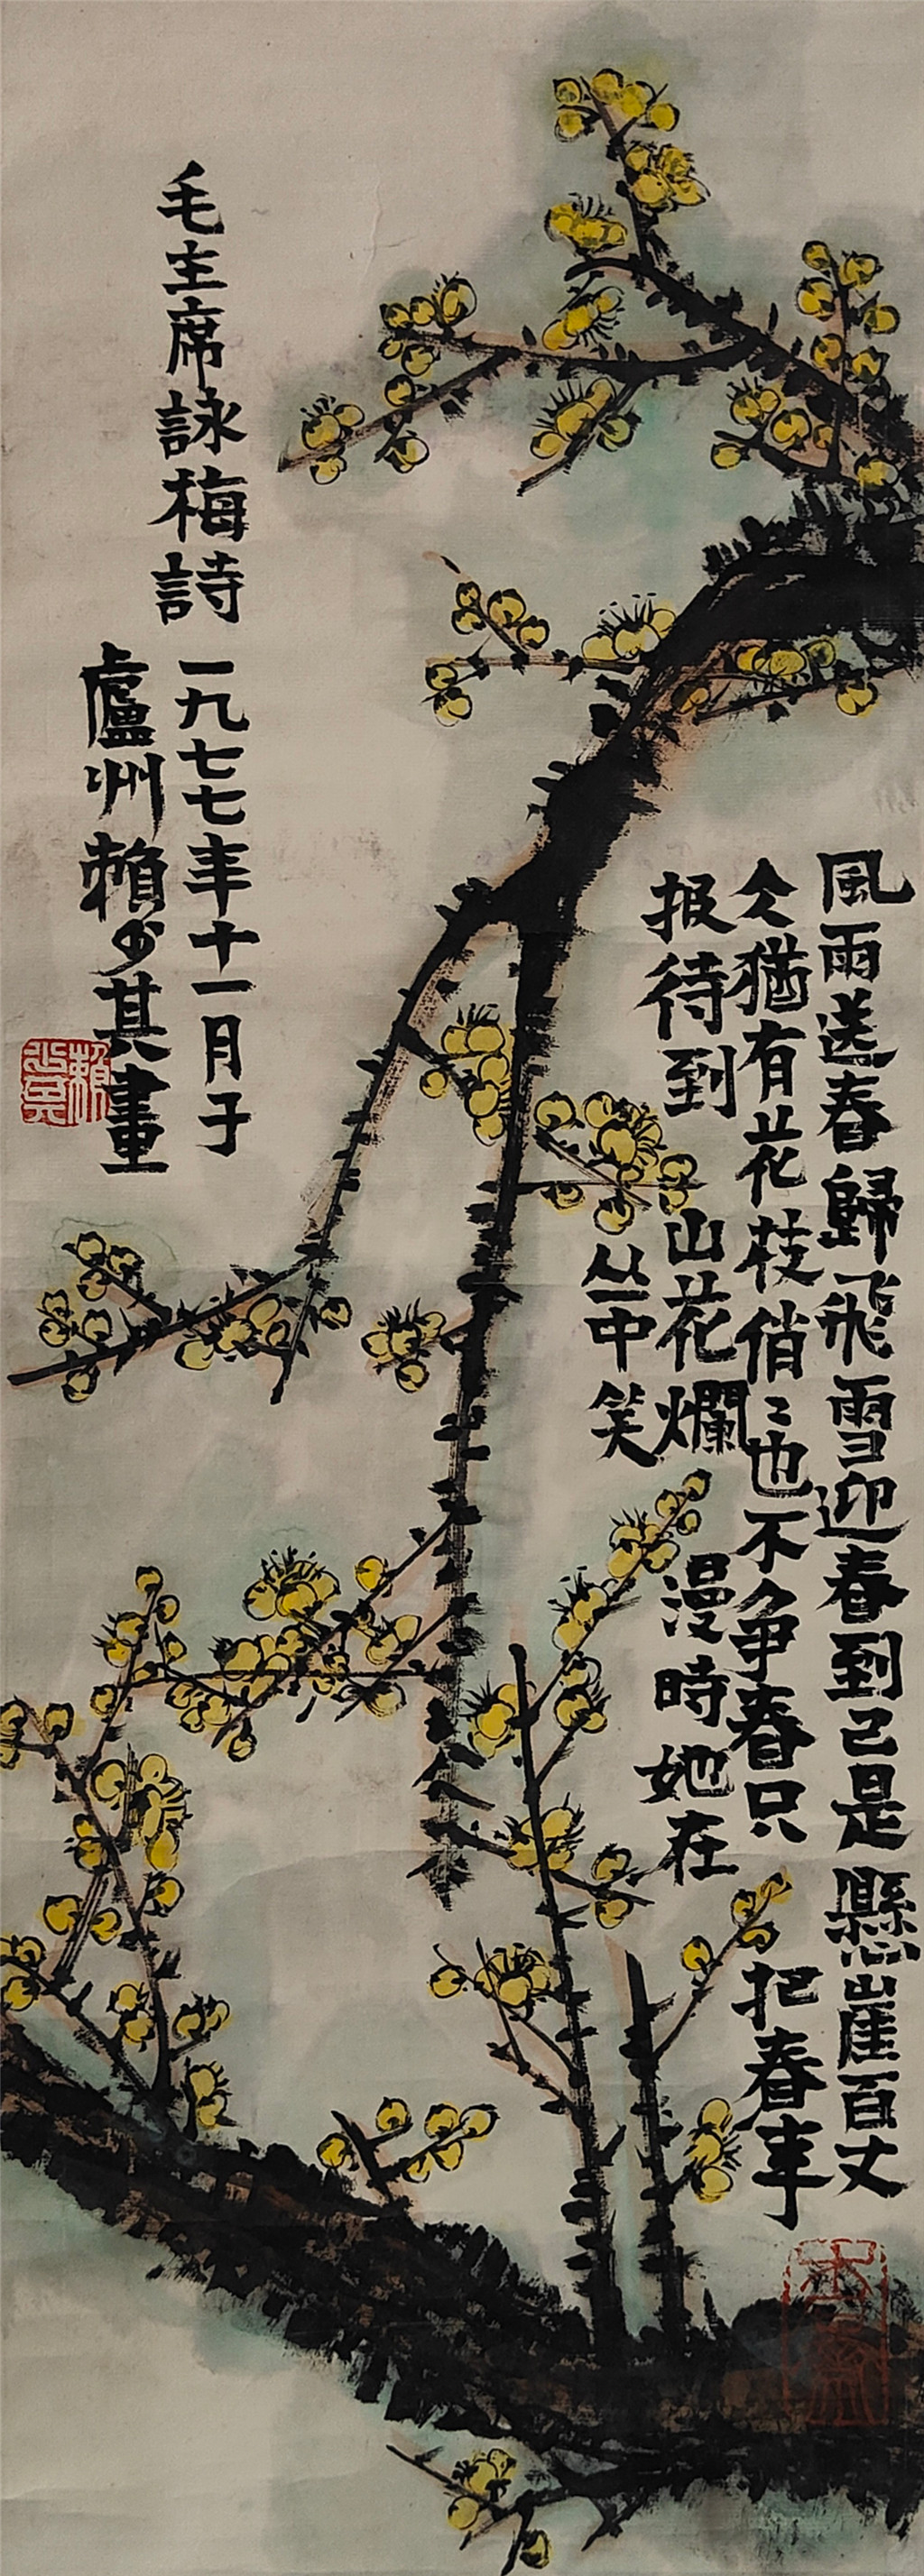 風雨送春歸飛雪迎春到已是懸崖百丈
仌猶有花枝俏〻也不争春只把春来
报待到山花爛漫時她在
丛中笑
毛主席詠梅詩
一九七七年十一月于
廬州賴少其畫
賴少其